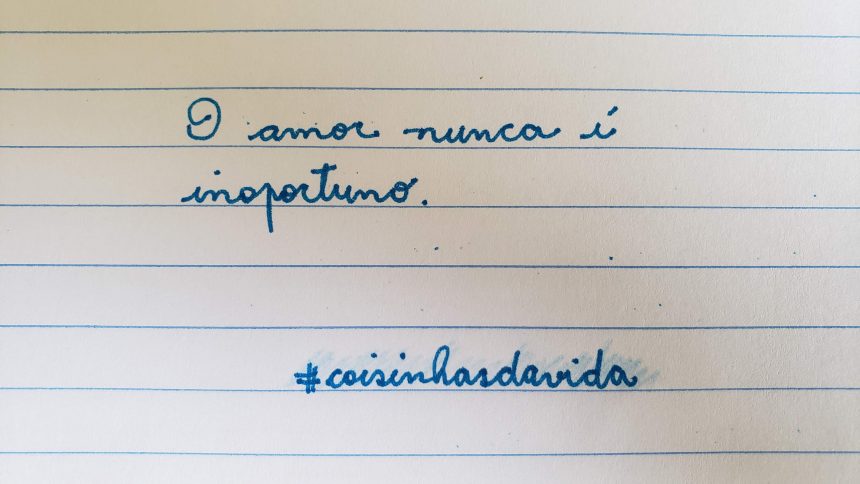 O amor nunca é
inoportuno.
#coisinhasdavida